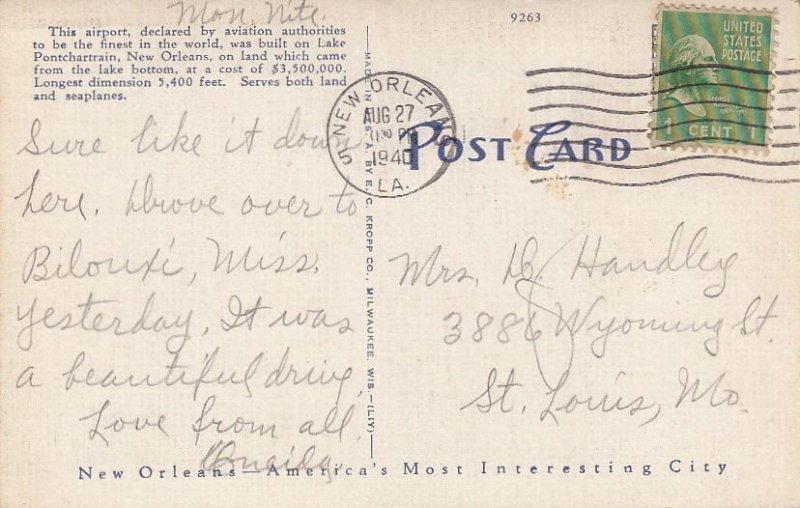 Mon. Nite.
This airport, declared by aviation authorities
to be the finest in the world, was built on Lake
Pontchartrain, New Orleans, on land which came
from the lake bottom, at a cost of $3,500,000.
Longest dimension 5,400 feet. Serves both land
and seaplanes.
Sure like it down
here. Drove over to
Bilouxi, Miss.
Yesterday, It was
a beautiful drive,
Love from all.
Oneida.
MADE IN U. S. A. BY E. C. KROPP CO., MILWAUKEE, WIS.—(LIY)
9263
UNITED
STATES
POSTAGE
1 CENT 1
NEW ORLEANS
AUG 27
1940
LA.
POST CARD
Mrs. D. Handley
3886 Wyoming St.
St. Louis, Mo.
New Orleans—America's Most Interesting City